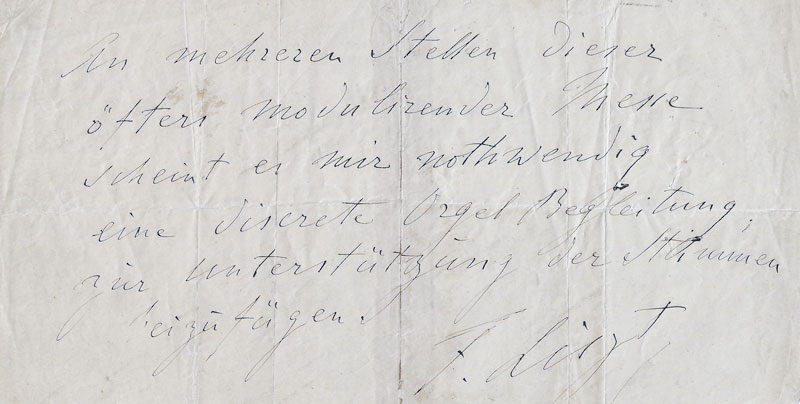 An mehreren Stellen dieser
öfters modulirender Messe
scheint es mir nothwendig
eine discrete Orgel Begleitung,
zur Unterstützung der Stimmen
beizufügen.
F. Liszt